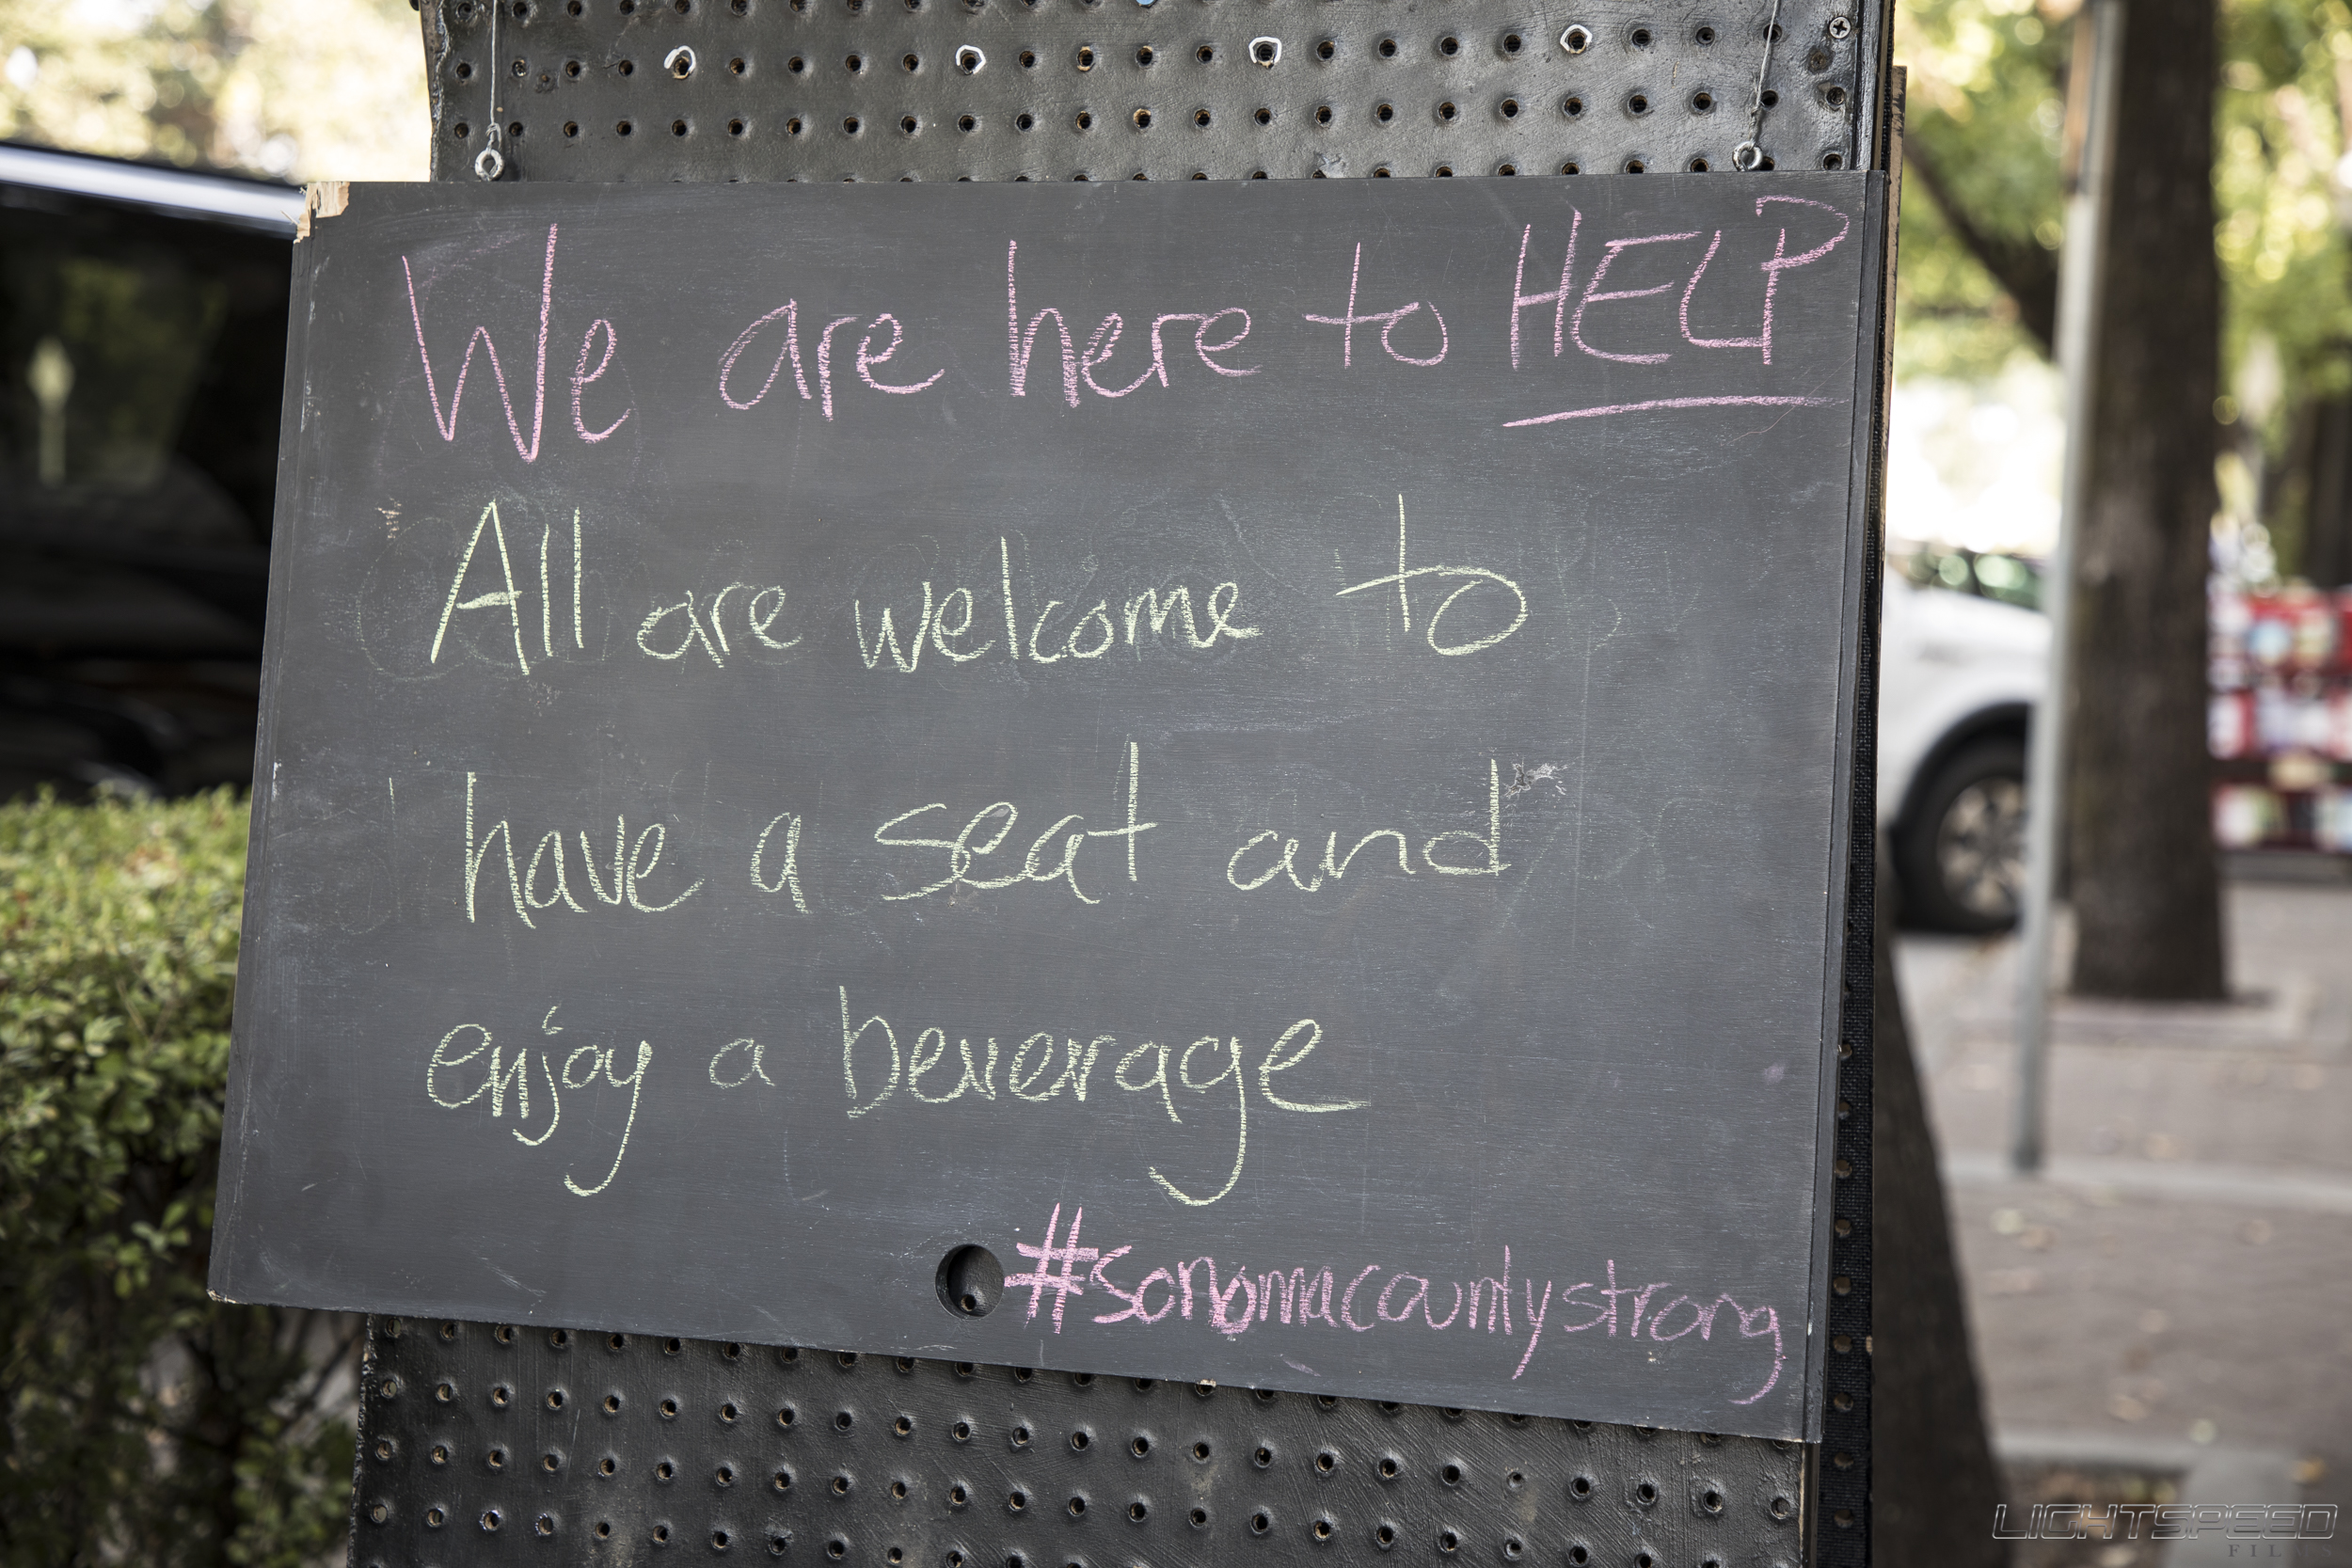 We are here to HELP
All are welcome to
have a seat and
enjoy a beverage
#sonomacountystrong
LIGHTSPEED
FILMS